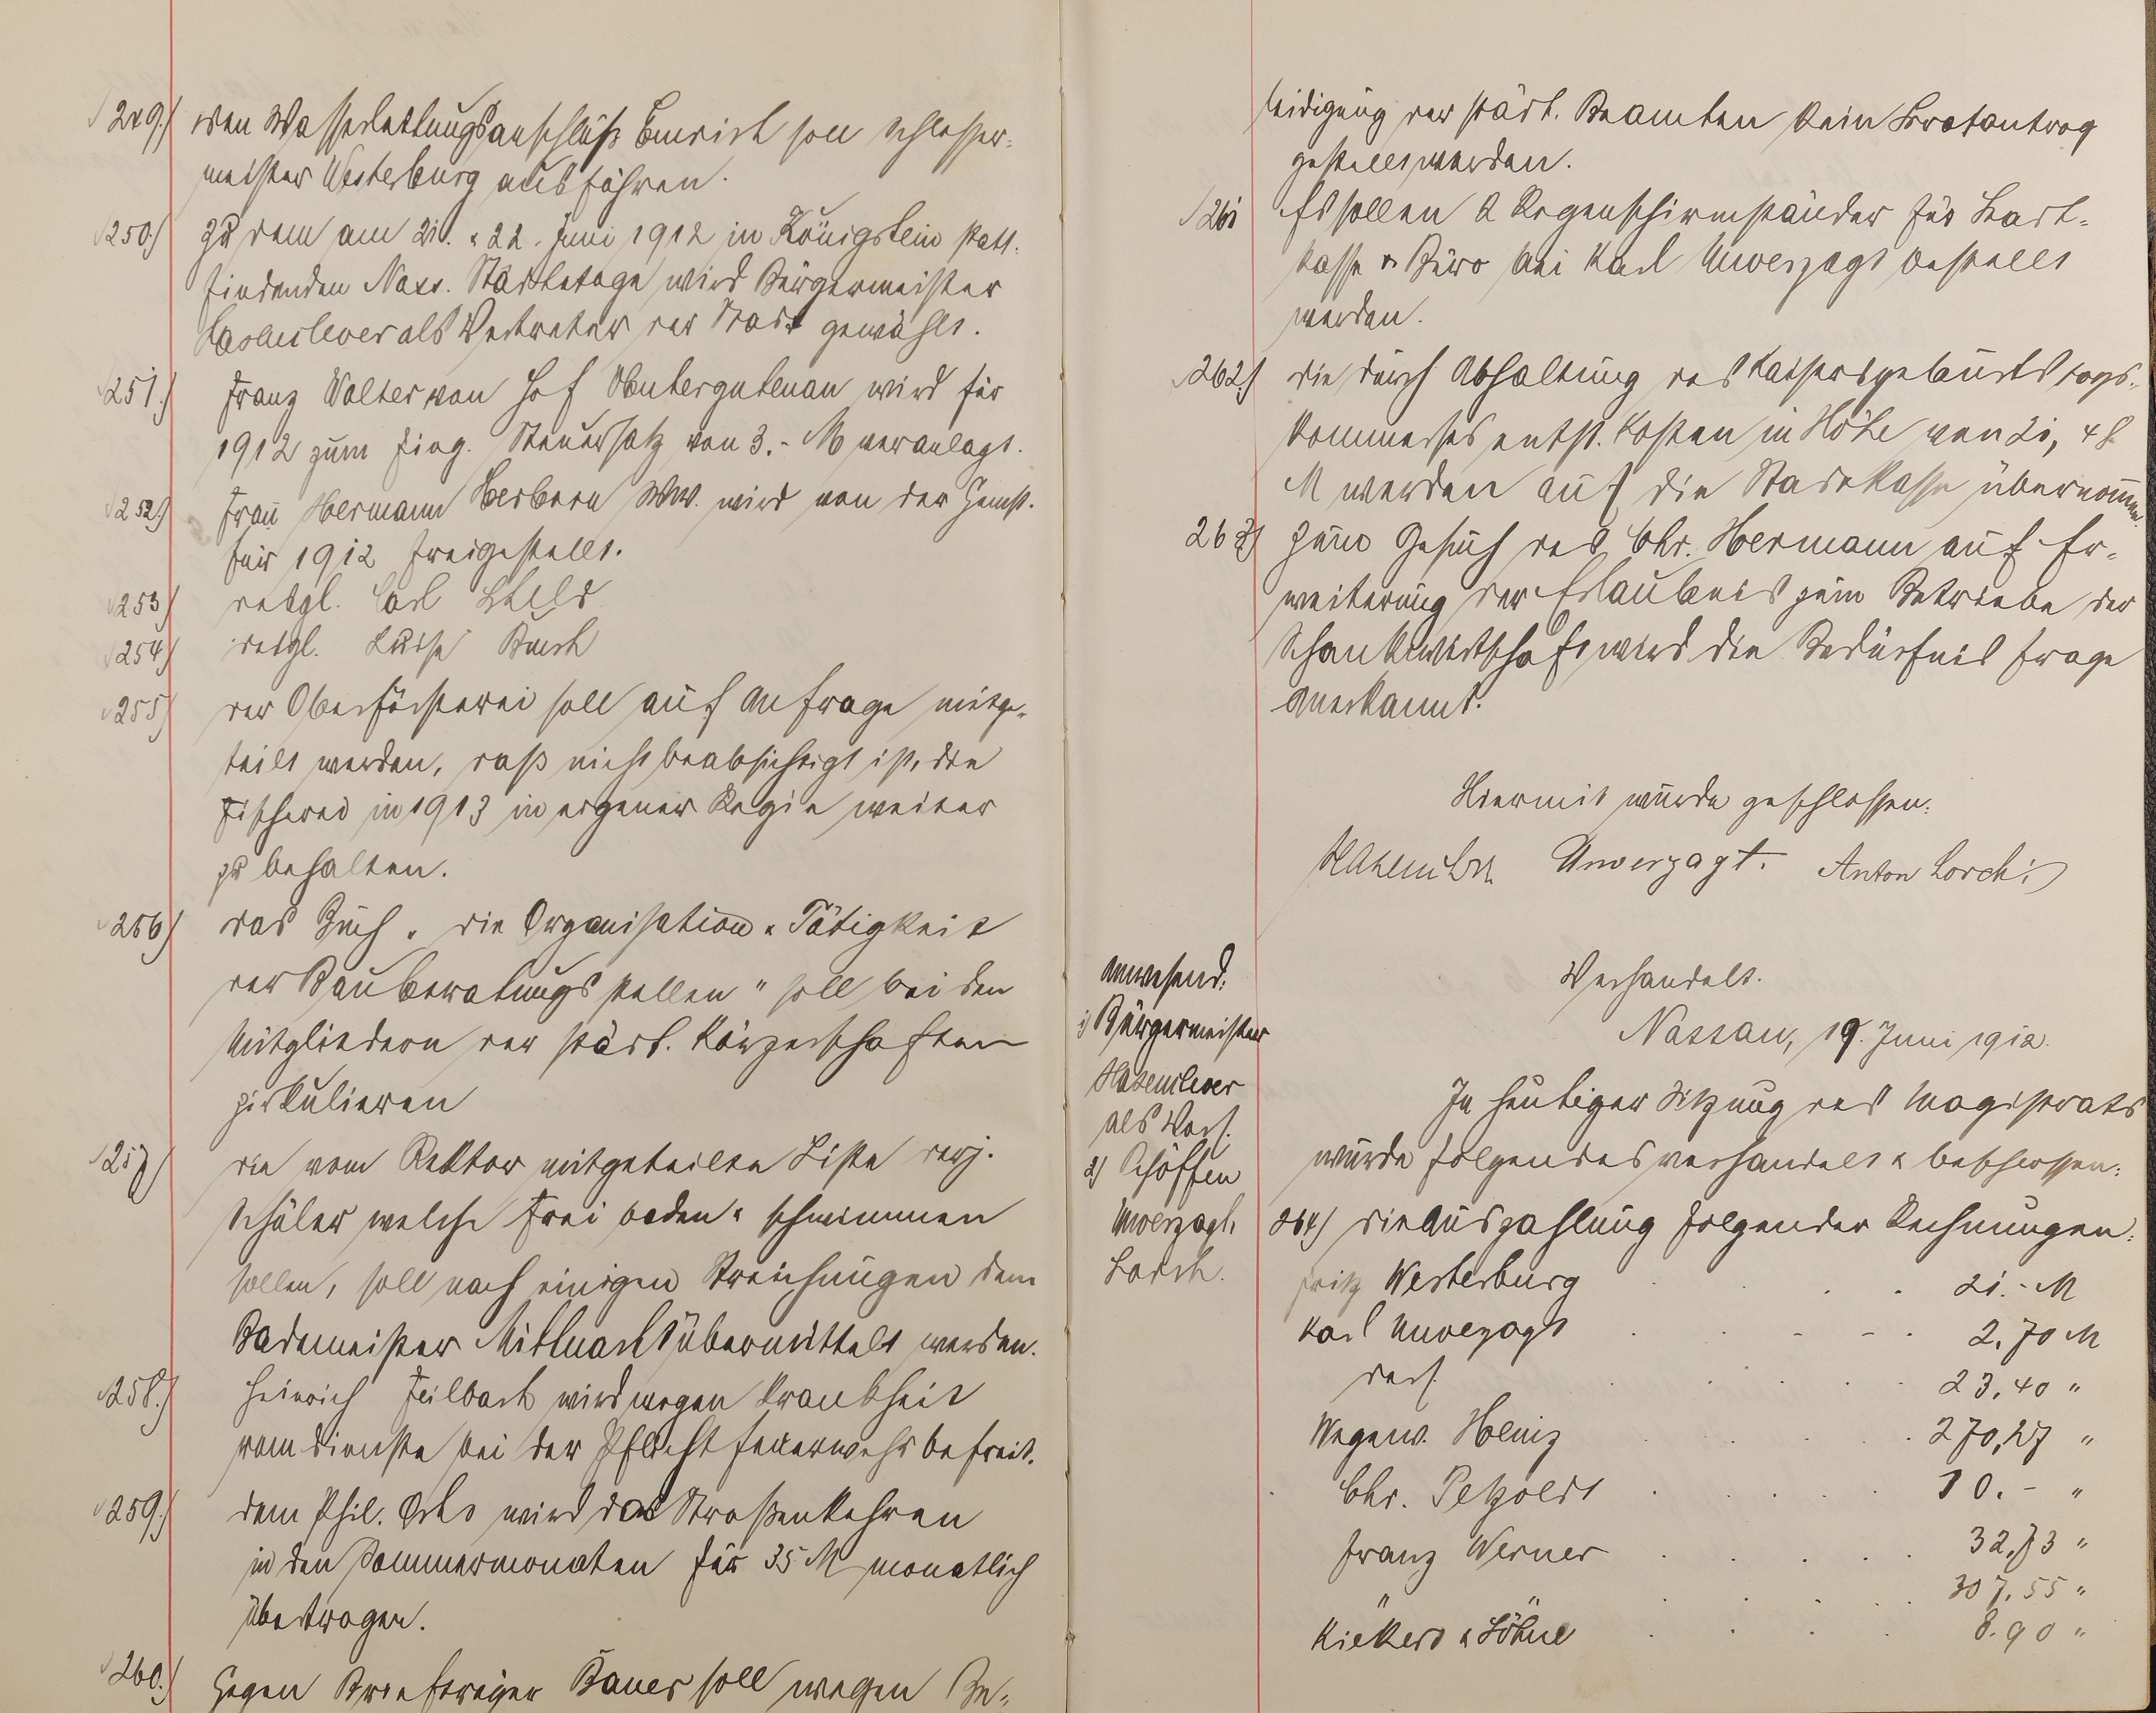 249.) Den Wasserleitungsanschluß Emrich soll Schlosser-
meister Westerburg ausführen.
250.) Zu dem am 21. & 22. Juni 1912 in Königstein statt-
findenden Nass. Städtetage wird Bürgermeister
Hasenclever als Vertreter der Stadt gewählt.
251.) Franz Walter von Hof wird für
1912 zum fing. Steuersatz von 3.- M veranlagt.
252.) Frau Hermann Herborn Ww. wird von der Gemst.
für 1912 freigestellt.
253.) desgl. Carl Schild
254.) desgl. Luise Busch
255.) Der Oberförsterei soll auf Anfrage mitge-
teilt werden, daß nicht beabsichtigt ist, die
Fischerei in 1913 in eigener Regie weiter
zu behalten.
256.) Das Buch „Die Organisation & Tätigkeit
der Bauberatungsstellen" soll bei den
Mitgliedern der städt. Körperschaften
zirkulieren
257.) Die vom Rektor mitgeteilte Liste derj.
Schüler welche frei baden & schwimmen
sollen, soll nach einigen Streichungen dem
Bademeister Mittnacht übermittelt werden.
258.) Heinrich Feilbach wird wegen Krankheit
vom Dienste bei der Pflichtfeuerwehr befreit.
259.) Dem Phil. Ochs wird das Straßenkehren
in den Sommermonaten für 35 M monatlich
übertragen.
260.) Gegen Briefträger Bauer soll wegen Be-
leidigung der städt. Beamten kein Strafantrag
gestellt werden.
261 Es sollen 2 Regenschirmständer für Stadt-
kasse & Büro bei Karl Unverzagt bestellt
werden.
262.) Die durch Abhaltung des Kaisersgeburtstags-
kommerses entst. Kosten in Höhe von 21,48
M werden auf die Stadtkasse übernommen.
263) Zum Gesuch des Chr. Hermann auf Er-
weiterung der Erlaubnis zum Betriebe der
Schankwirtschaft wird die Bedürfnisfrage
anerkannt.
Hiermit wurde geschlossen:
Hasenclever Unverzagt. Anton Lorch.
Verhandelt.
Nassau, 19. Juni 1912.
Anwesend:
1) Bürgermeister
Hasenclever
als Vors.
2) Schöffen
Unverzagt,
Lorch.
In heutiger Sitzung des Magistrats
wurde folgendes verhandelt & beschlossen:
264.) Die Auszahlung folgender Rechnungen:
Fritz Westerburg . . . 21.- M
Karl Unverzagt . . - - . 2,70 M
ders. . . . . . 23,40 "
Wegew. Heinz . . . . . 270,27 "
Chr. Petzoldt . . . . . 10.- "
Franz Werner . . . . . 32,73 "
" " . . . . . 307,55 "
Kiekert & Söhne . . . . 8.90 "